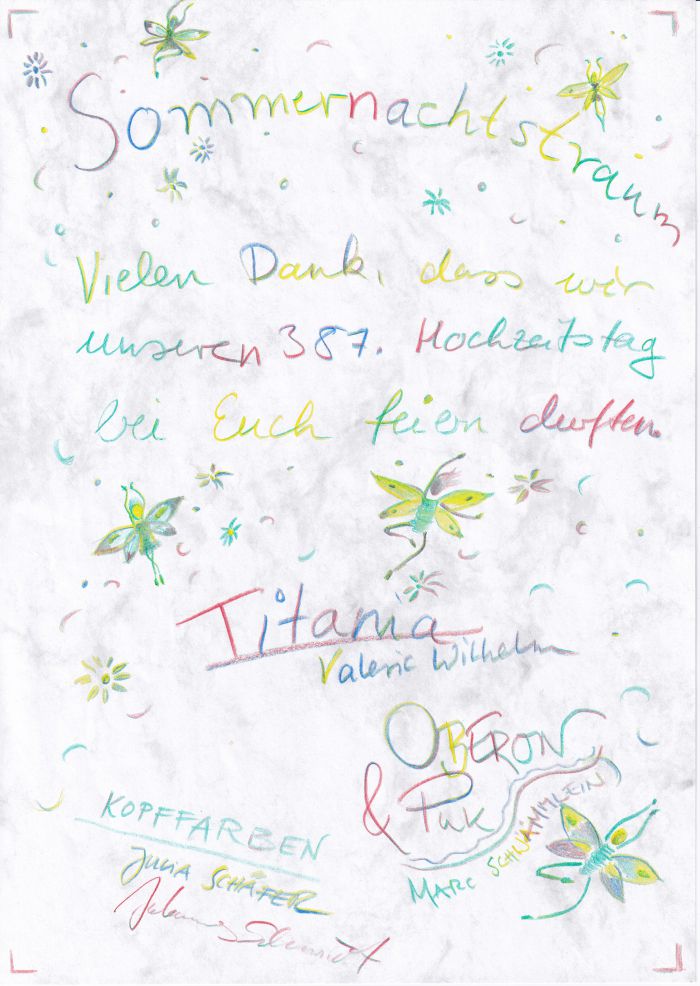 Sommernachtstraum
Vielen Dank, dass wir
unseren 387. Hochzeitstag
bei Euch feiern durften.
Titania
Valerie Wilhelm
OBERON
& PUK
MARC SCHWÄMMLEIN
KOPFFARBEN
JULIA SCHÄFER